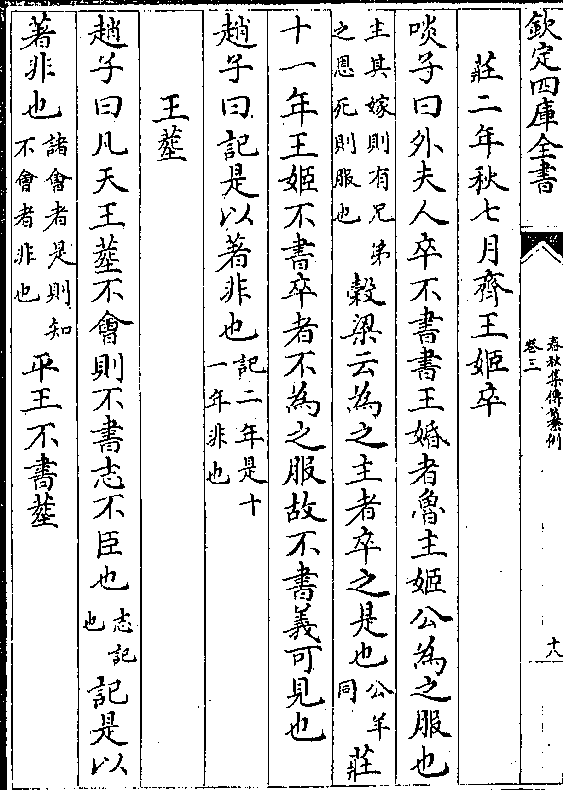 欽定四庫全書
春秋集傳纂例
卷三
十八
莊二年秋七月齊王姬卒
啖子曰外夫人卒不書書王婚者魯主姬公為之服也
主其嫁則有兄弟之恩死則服也 穀梁云為之主者卒之是也公羊同 莊
十一年王姬不書卒者不為之服故不書義可見也
趙子曰記是以著非也記二年是十一年非也
王塟
趙子曰凡天王塟不會則不書志不臣也志記也 記是以
著非也諸會者是則知不會者非也 平王不書塟